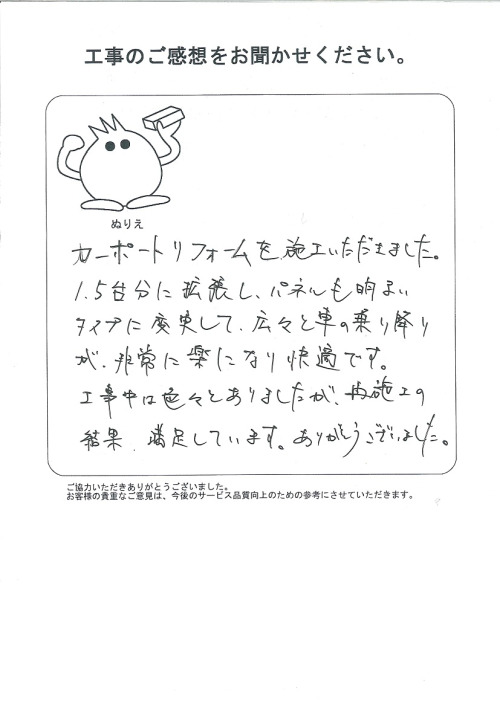 工事のご感想をお聞かせください。
ぬりえ
カーポートリフォームを施工いただきました。
1.5台分に拡張し、パネルも明るい
タイプに変更して、広々と車の乗り降り
が、非常に楽になり快適です。
工事中は色々とありましたが、再施工の
結果、満足しています。ありがとうございました。
ご協力いただきありがとうございました。
お客様の貴重なご意見は、今後のサービス品質向上のための参考にさせていただきます。